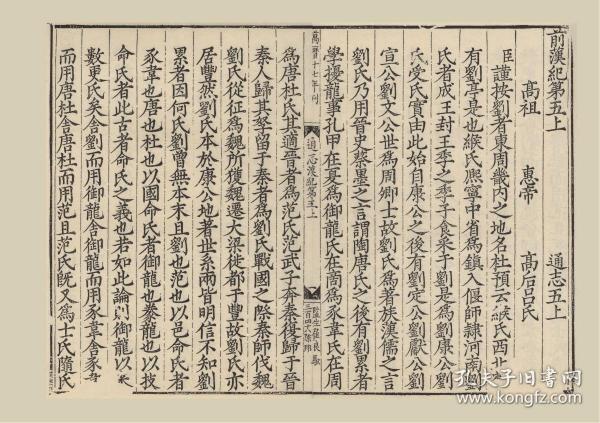 前漢紀第五上 通志五上
高祖 惠帝 高后呂氏
臣謹按劉者東周畿內之地名杜預云緱氏西北
有劉亭是也緱氏熙寧中省為鎮入偃師隸河南劉
氏者成王封王季之季子食采于劉是為劉康公劉
氏受氏實由此始自康公之後有劉定公劉獻公劉
宣公劉文公世為周卿士故劉氏為著族漢儒之言
劉氏乃用晉史蔡墨之言謂陶唐氏之後有劉累者
學擾龍事孔甲在夏為御龍氏在商為豕韋氏在周
萬曆十七年刊
通志漢紀第五上
為唐杜氏其適晉者為范氏范武子奔秦復歸于晉
秦人歸其孥留于秦者為劉氏戰國之際秦師伐魏
劉氏從征為魏所獲魏遷大梁徙都于豐故劉氏亦
居豐然劉氏本於康公地著世系兩皆明信不知劉
累者因何氏劉曾無本末且劉也范也以邑命氏者
豕韋也唐也杜也以國命氏者御龍也豢龍也以技
命氏者此古者命氏之義也若如此論則御龍以
數更氏矣舍劉而用御龍舍御龍而用豕韋舍豕
而用唐杜舍唐杜而用范且范氏既又為士氏隨氏
孔夫子旧书网
kongfz.com